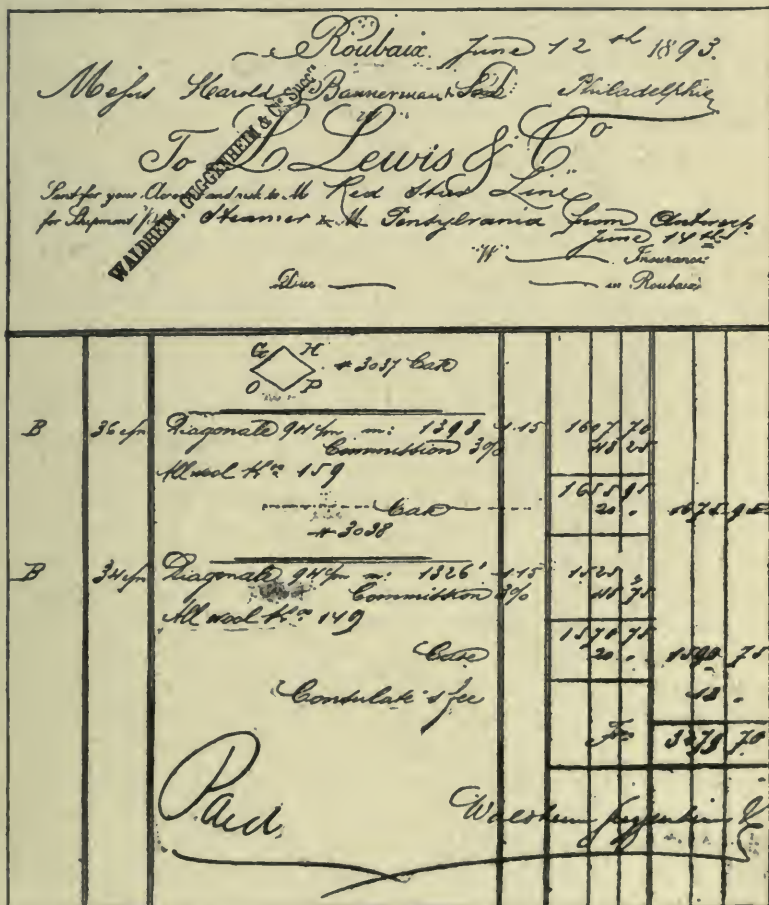 Roubaix. June 12th 1893.
Messrs Harold Bannerman & Philadelphia
To L. Lewis & Co
WALDHEIM, GUGGENHEIM & Co Succrs
Sent for your and risk to Mr Red Star Line
for Shipment p. Steamer Pensylvania from Antwerp
June 14th
Insurance
Due — — in Roubaix
G H # 3037 Case
O P
B 36 Diagonale 94 c/m m: 1398 1.15 1607 70
Commission 3% 48 25
All wool Kos 159 1655 95
Case 20 . 1675 95
# 3038
B 34 Diagonale 94 c/m m: 1326 1.15 1525
Commission 3% 45 75
All wool Kos 149 1570 75
Case 20 . 1590 75
Consulate's fee 13 .
Frs 3279 70
Paid,
Waldheim Guggenheim &